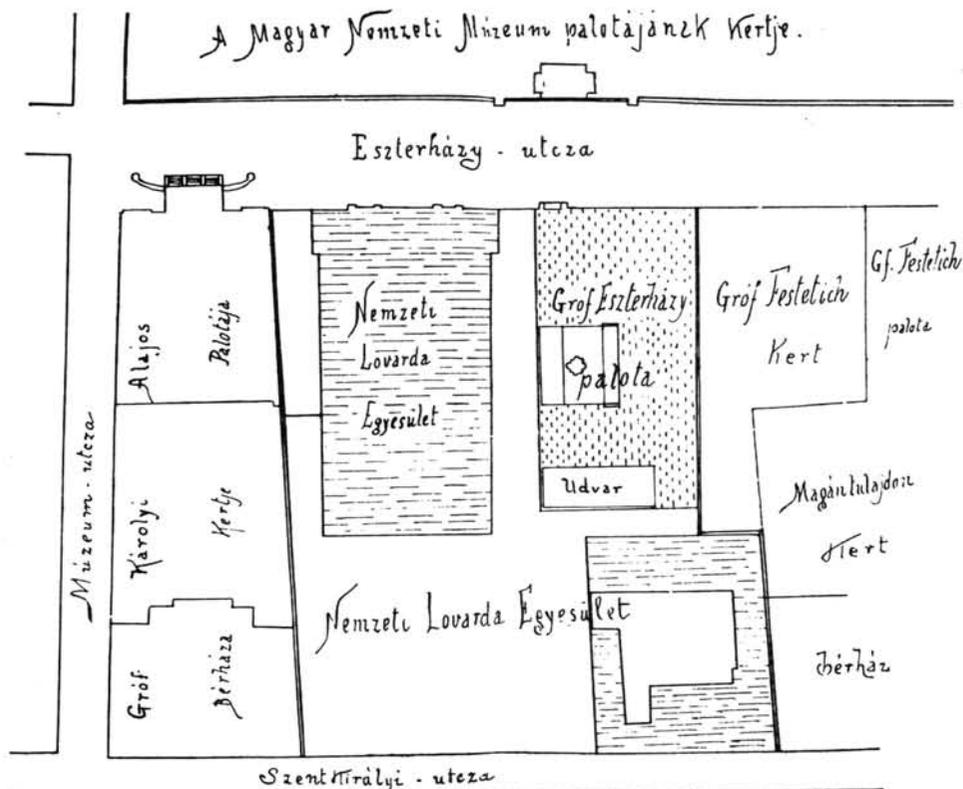 A Magyar Nemzeti Múzeum palotájának Kertje.
Eszterházy - utcza
Múzeum - utcza
Gróf Károlyi Alajos
Palotája
Kertje
Bérháza
Nemzeti
Lovarda
Egyesület
Gróf Eszterházy
palota
Udvar
Gróf Festetich
Kert
Gf. Festetich
palota
Magántulajdon
Kert
Bérház
Nemzeti Lovarda Egyesület
Szentkirályi - utcza